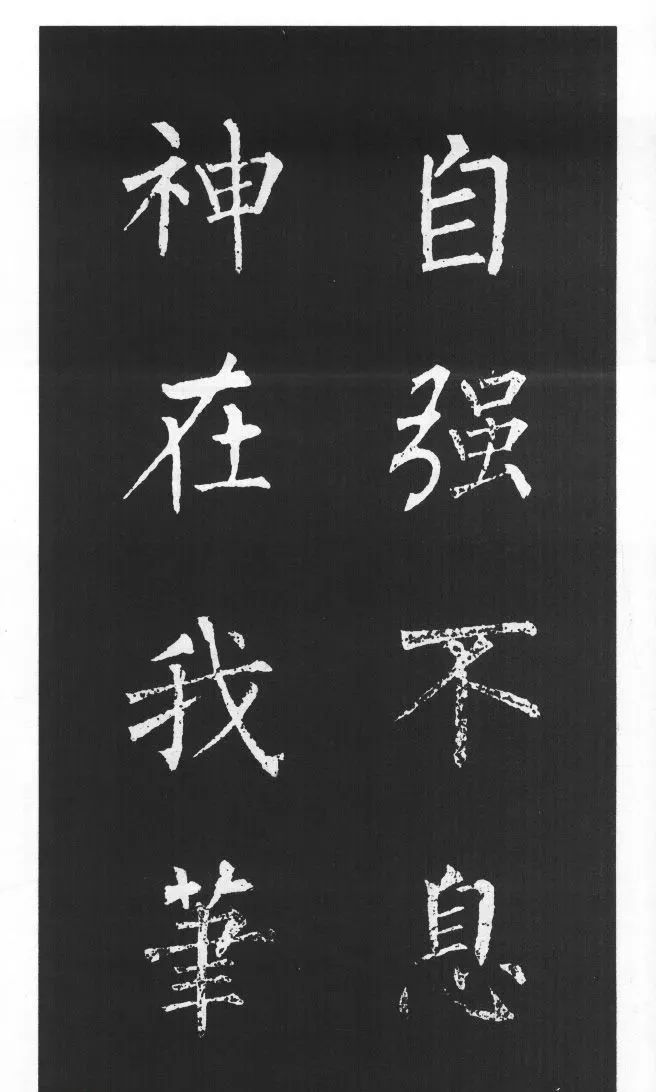 自强不息
神在我筆